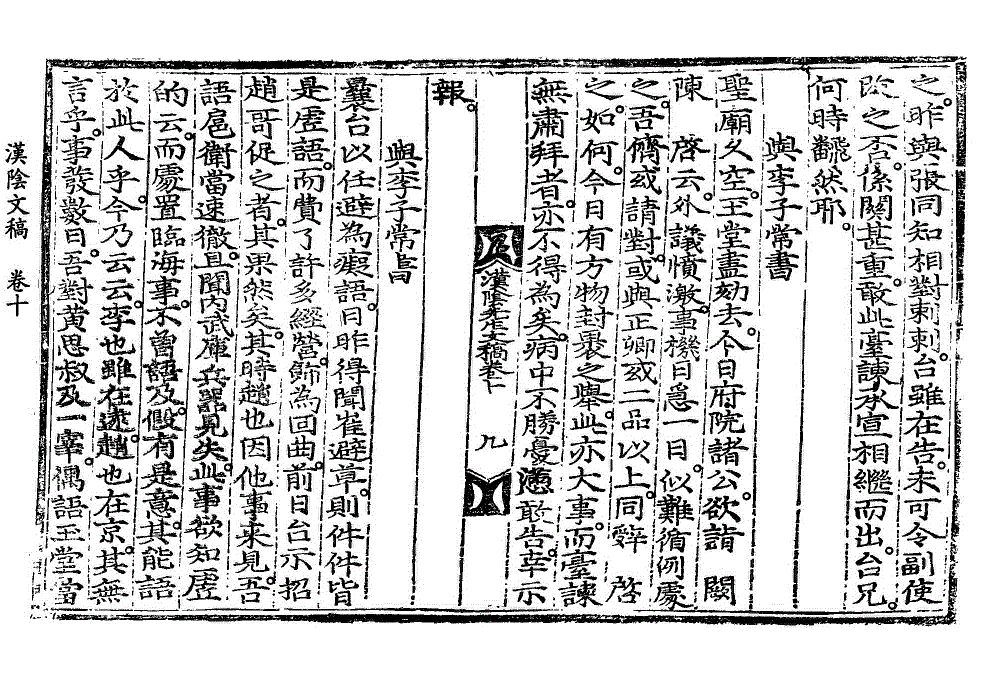 之。昨與張同知相對剌剌。台雖在告。未可令副使
改之否。係關甚重。敢此。臺諫承宣相繼而出。台兄。
何時飜然耶。
與李子常書
聖廟久空。玉堂盡劾去。今日府院諸公。欲詣 闕
陳 啓云。外議憤激。事機日急一日。似難循例處
之。吾儕或請對。或與正卿或二品以上。同辭 啓
之。如何。今日有方物封裹之擧。此亦大事。而臺諫
無肅拜者。亦不得爲矣。病中不勝憂懣。敢告。幸示
漢陰先生文稿卷十 九
報。
與李子常書
曩台以任避爲癡語。日昨得聞崔避草。則件件皆
是虛語。而費了許多經營。飾爲回曲。前日台示招
趙哥促之者。其果然矣。其時趙也因他事來見。吾
語扈衛當速撤。且聞內武庫兵器見失。此事欲知虛
的云。而處置臨海事。不曾語及。假有是意。其能語
於此人乎。今乃云云。李也雖在遠。趙也在京。其無
言乎。事發數日。吾對黃思叔及一宰。偶語玉堂當
漢陰文稿 卷十